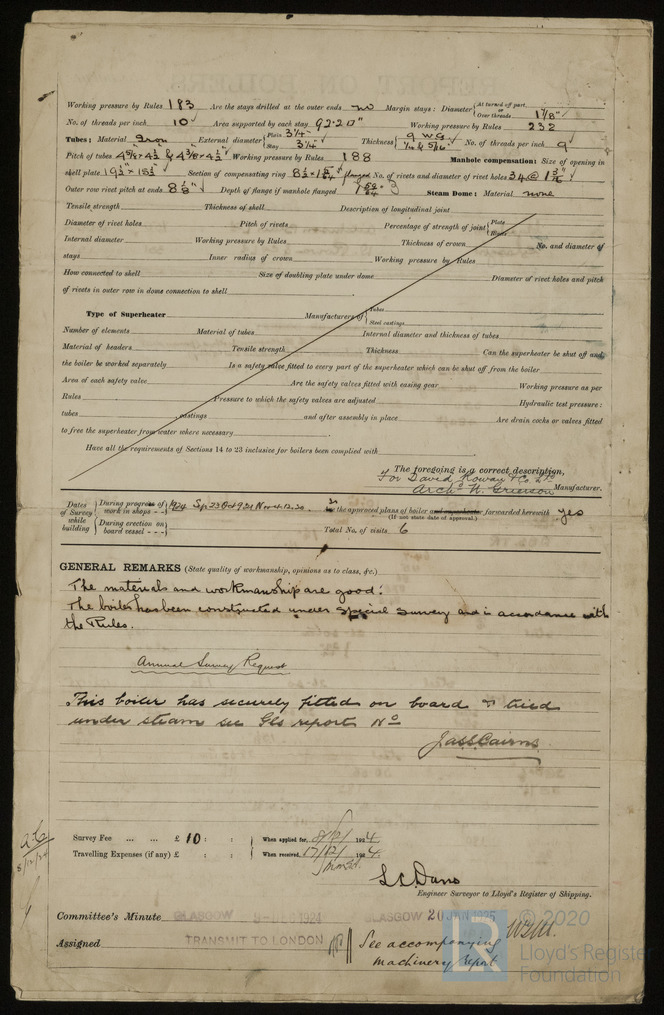 Working pressure by Rules 193 Are the stays drilled at the outer ends no Margin stays: Diameter { At turned off part, or Over threads 1 7/8" ✓
No. of threads per inch 10 ✓ Area supported by each stay 92.20" Working pressure by Rules 232
Tubes: Material Iron External diameter { Plain 3 1/4" Stay 3 1/4" ✓ Thickness { 9 WG 5/16" ✓ No. of threads per inch 9 ✓
Pitch of tubes Working pressure by Rules 188 Manhole compensation: Size of opening in
shell plate 19 1/2" × 15 1/2" ✓ Section of compensating ring flanged No. of rivets and diameter of rivet holes 34 @
Outer row rivet pitch at ends 8 1/8" ✓ Depth of flange if manhole flanged Steam Dome: Material none
Tensile strength Thickness of shell Description of longitudinal joint
Diameter of rivet holes Pitch of rivets Percentage of strength of joint { Plate Rivets
Internal diameter Working pressure by Rules Thickness of crown No. and diameter of
stays Inner radius of crown Working pressure by Rules
How connected to shell Size of doubling plate under dome Diameter of rivet holes and pitch
of rivets in outer row in dome connection to shell
Type of Superheater Manufacturers of { Tubes Steel castings
Number of elements Material of tubes Internal diameter and thickness of tubes
Material of headers Tensile strength Thickness Can the superheater be shut off and
the boiler be worked separately Is a safety valve fitted to every part of the superheater which can be shut off from the boiler
Area of each safety valve Are the safety valves fitted with easing gear Working pressure as per
Rules Pressure to which the safety valves are adjusted Hydraulic test pressure:
tubes castings and after assembly in place Are drain cocks or valves fitted
to free the superheater from water where necessary
Have all the requirements of Sections 14 to 23 inclusive for boilers been complied with
The foregoing is a correct description,
For David Rowan & Co. Ltd
Archd. W. Grierson Manufacturer.
Dates of Survey while building { During progress of work in shops - - 1924 Sep 23 Oct 9.21 Nov 4.12.20. Are the approved plans of boiler and superheater forwarded herewith yes
(If not state date of approval.)
During erection on board vessel - - - Total No. of visits 6
GENERAL REMARKS (State quality of workmanship, opinions as to class, &c.)
The materials and workmanship are good.
The boiler has been constructed under special survey and in accordance with
the Rules.
Annual Survey Request
This boiler has securely fitted on board & tried
under steam see Gls report No
Jas S Cairns
Survey Fee ... ... £ 10 : : When applied for, 8/12/1924
Travelling Expenses (if any) £ : : When received, 17/12/1924.
L.C. Davis
Engineer Surveyor to Lloyd's Register of Shipping.
Committee's Minute GLASGOW 9-DEC 1924 GLASGOW 20 JAN 1925
Assigned TRANSMIT TO LONDON See accompanying
machinery report
© 2020
LR Lloyd's Register
Foundation